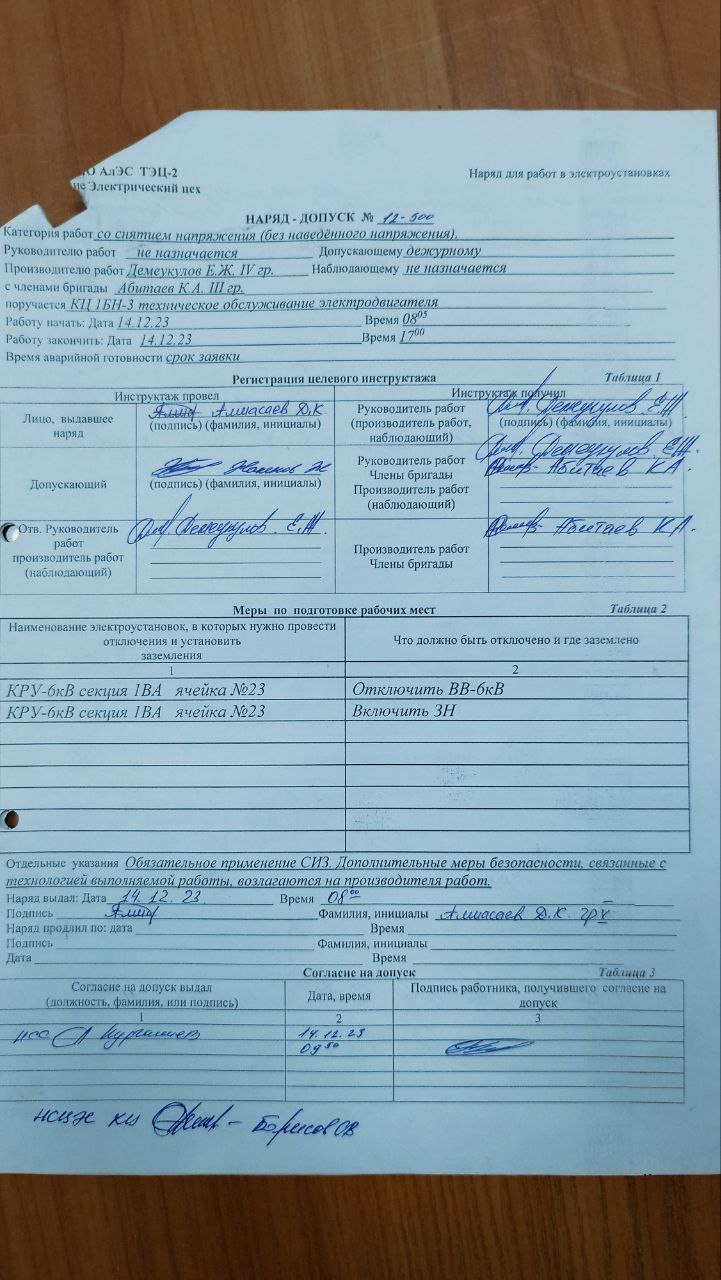 АлЭС ТЭЦ-2
Наряд для работ в электроустановках
Электрический цех
НАРЯД - ДОПУСК № 12-500
Категория работ со снятием напряжения (без наведённого напряжения).
Руководителю работ не назначается Допускающему дежурному
Производителю работ Демеукулов Е.Ж. IV гр. Наблюдающему не назначается
с членами бригады Абитаев К.А. III гр.
поручается КЦ 1БН-3 техническое обслуживание электродвигателя
Работу начать: Дата 14.12.23 Время 08 05
Работу закончить: Дата 14.12.23 Время 17 00
Время аварийной готовности срок заявки
Регистрация целевого инструктажа Таблица 1
Инструктаж провел Инструктаж получил
Лицо, выдавшее
наряд
Алшасаев Д.К
(подпись) (фамилия, инициалы)
Руководитель работ
(производитель работ,
наблюдающий)
Демеукулов Е.Ж.
(подпись) (фамилия, инициалы)
Допускающий
(подпись) (фамилия, инициалы)
Руководитель работ
Члены бригады
Производитель работ
(наблюдающий)
Демеукулов Е.Ж.
Абитаев К.А.
Отв. Руководитель
работ
производитель работ
(наблюдающий)
Демеукулов Е.Ж.
Производитель работ
Члены бригады
Абитаев К.А.
Меры по подготовке рабочих мест Таблица 2
Наименование электроустановок, в которых нужно провести
отключения и установить
заземления
Что должно быть отключено и где заземлено
1 2
КРУ-6кВ секция 1ВА ячейка №23 Отключить ВВ-6кВ
КРУ-6кВ секция 1ВА ячейка №23 Включить ЗН
Отдельные указания Обязательное применение СИЗ. Дополнительные меры безопасности, связанные с
технологией выполняемой работы, возлагаются на производителя работ.
Наряд выдал: Дата 14.12.23 Время 08 00
Подпись Фамилия, инициалы Алшасаев Д.К. гр V
Наряд продлил по: дата Время
Подпись Фамилия, инициалы
Дата Время
Согласие на допуск Таблица 3
Согласие на допуск выдал
(должность, фамилия, или подпись)
Дата, время
Подпись работника, получившего согласие на
допуск
1 2 3
НСС
14.12.23
09 50
НСЦЖ КЦ Борисов ОВ